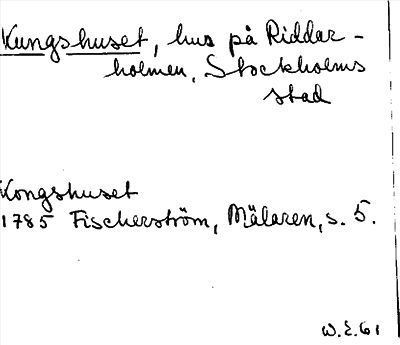 Kungshuset, hus på Riddar-
holmen, Stockholms
stad
Kongshuset
1785 Fischerström, Mälaren, s. 5.
W.E.61